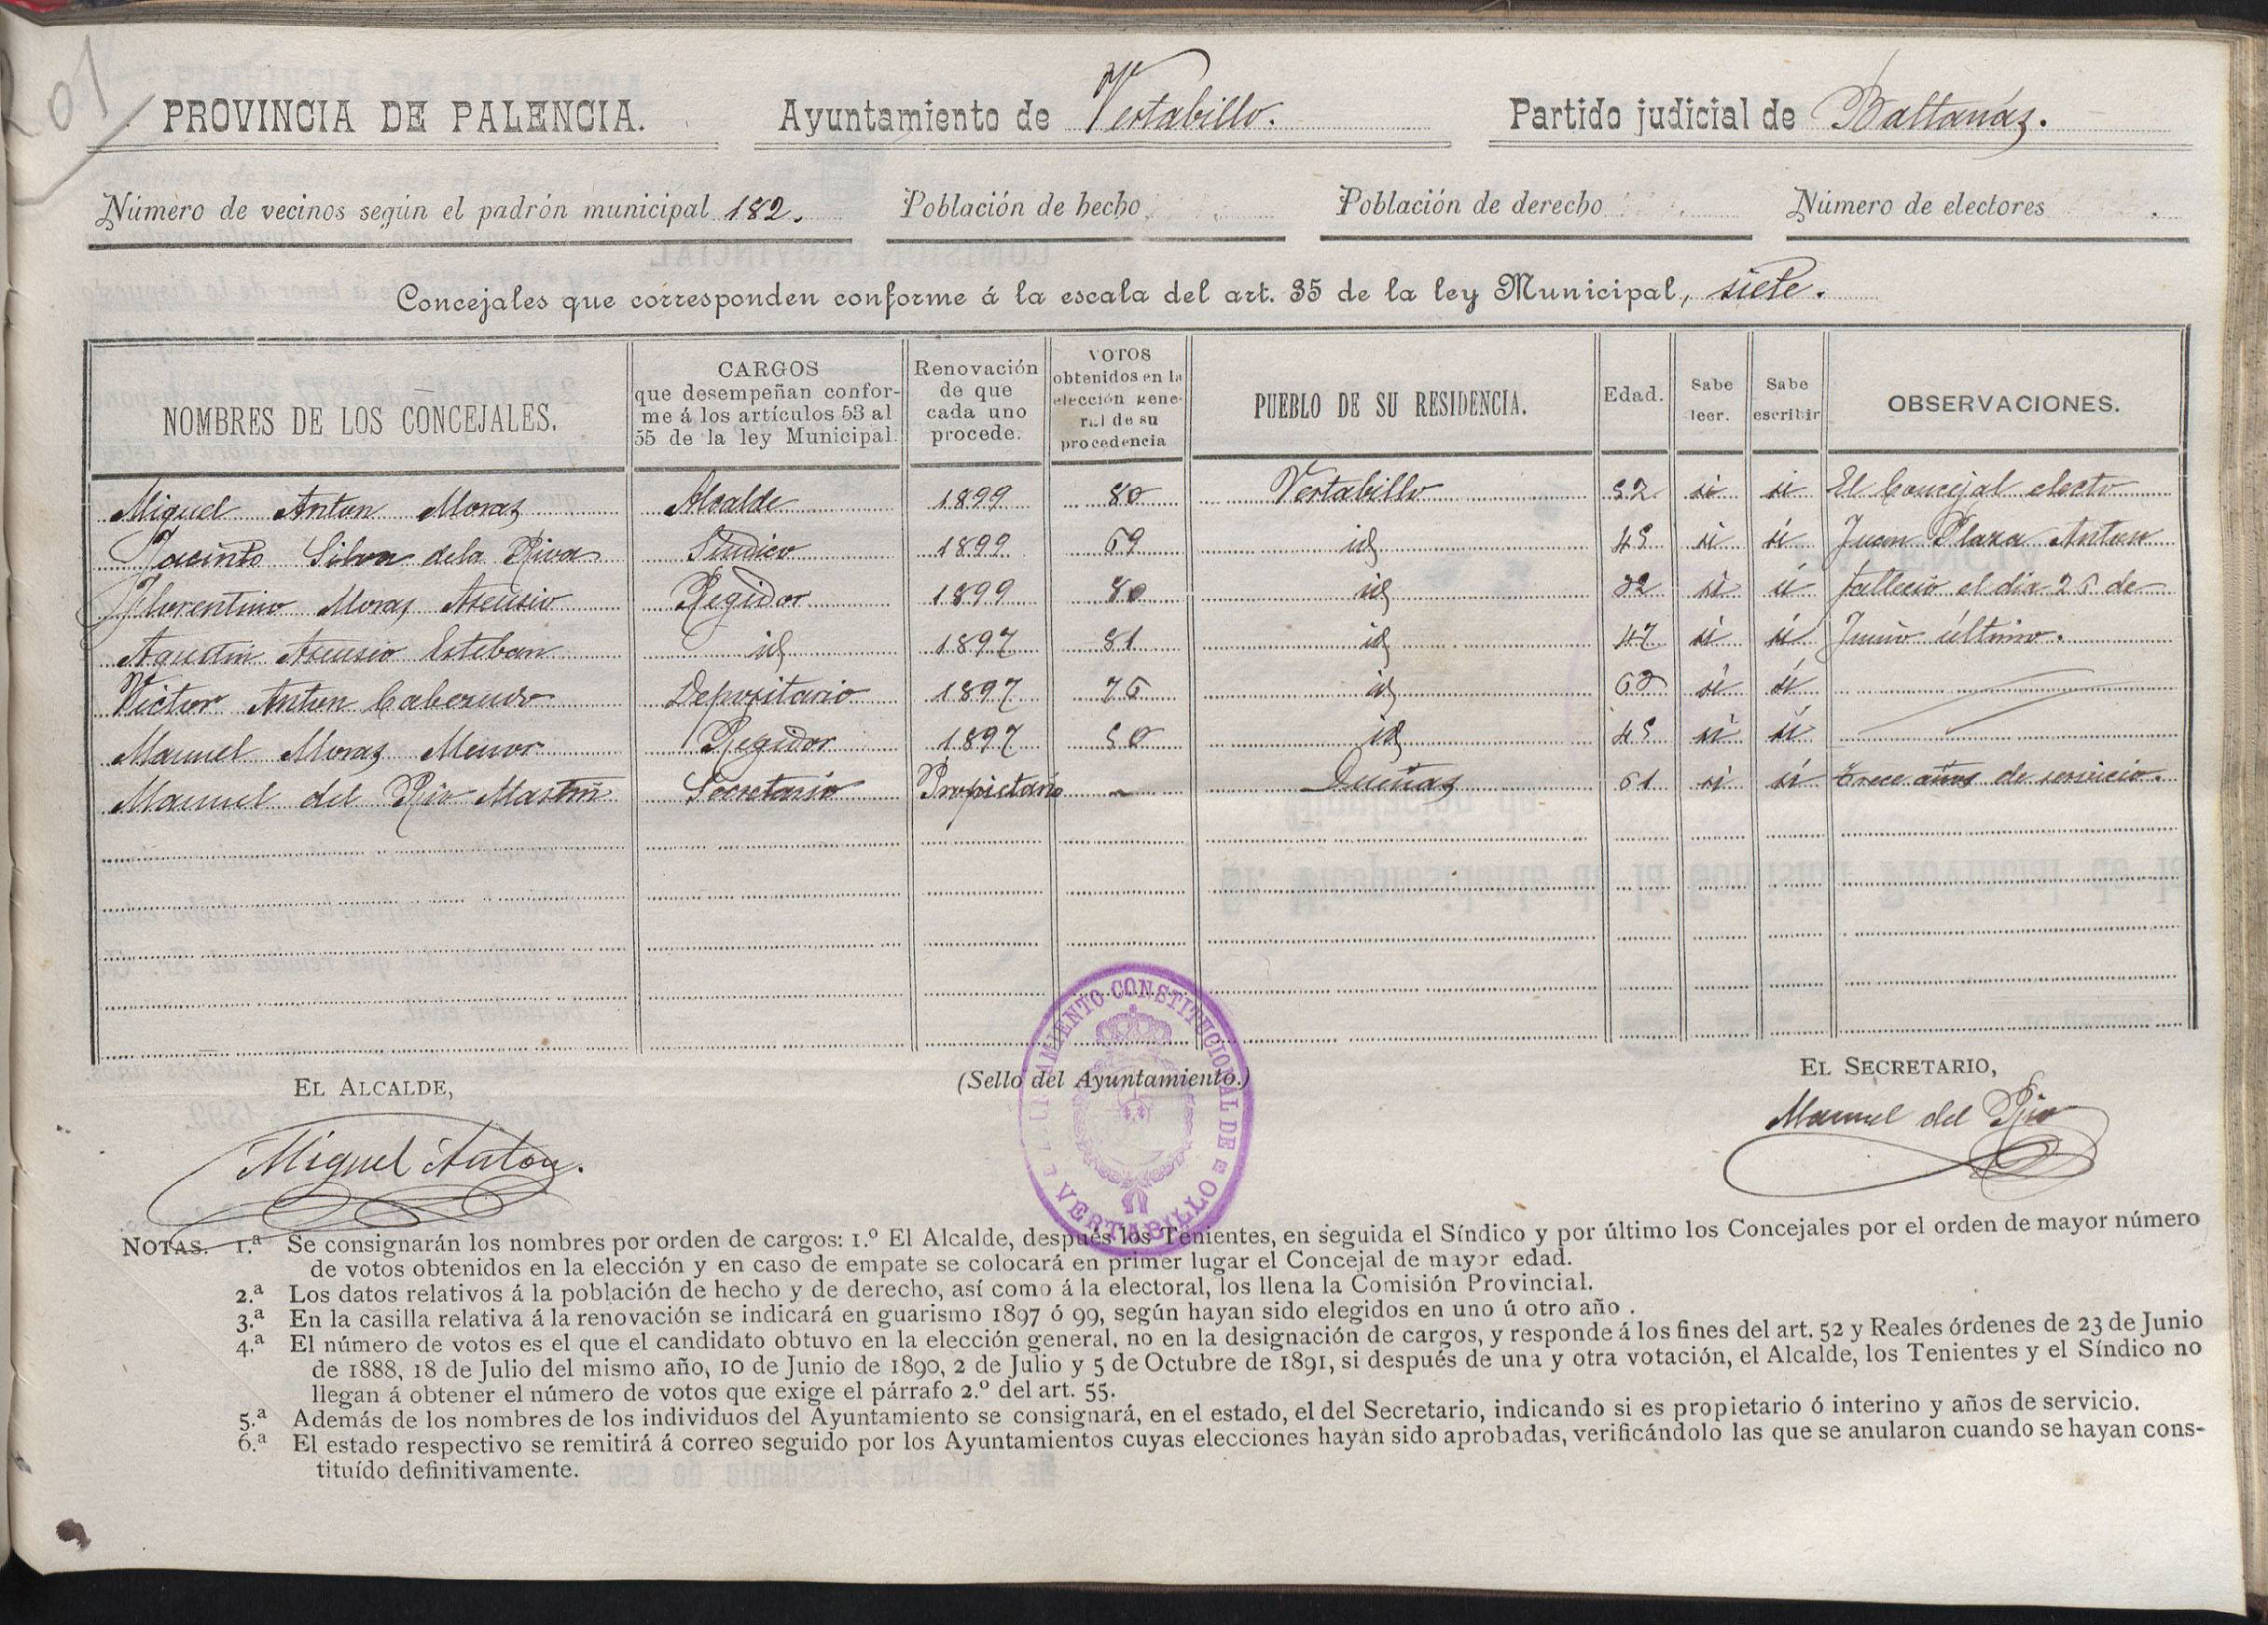 201
PROVINCIA DE PALENCIA. Ayuntamiento de Vertabillo. Partido judicial de Baltanás.
Número de vecinos según el padrón municipal 182. Población de hecho Población de derecho Número de electores
Concejales que corresponden conforme á la escala del art. 35 de la ley Municipal, siete.
NOMBRES DE LOS CONCEJALES. CARGOS que desempeñan conforme á los artículos 53 al 55 de la ley Municipal. Renovación de que cada uno procede. VOTOS obtenidos en la elección general de su procedencia PUEBLO DE SU RESIDENCIA. Edad. Sabe leer. Sabe escribir OBSERVACIONES.
Miguel Anton Moras Alcalde 1899 80 Vertabillo 52 si si El Concejal electo
Jacinto Silva de la Riva Síndico 1899 69 id 45 si si Juan Plaza Anton
Florentino Moras Asensio Regidor 1899 80 id 32 si si falleció el dia 25 de
Agustin Asensio Esteban id 1897 81 id 47 si si Junio último.
Victor Anton Cabezudo Depositario 1897 76 id 62 si si
Manuel Moras Menor Regidor 1897 50 id 45 si si
Manuel del Rio Martin Secretario Propietario Dueñas 61 si si Trece años de servicio.
EL ALCALDE, (Sello del Ayuntamiento.) EL SECRETARIO,
Miguel Anton. Manuel del Rio
AYUNTAMIENTO CONSTITUCIONAL DE VERTABILLO
NOTAS. 1.ª Se consignarán los nombres por orden de cargos: 1.º El Alcalde, después los Tenientes, en seguida el Síndico y por último los Concejales por el orden de mayor número
de votos obtenidos en la elección y en caso de empate se colocará en primer lugar el Concejal de mayor edad.
2.ª Los datos relativos á la población de hecho y de derecho, así como á la electoral, los llena la Comisión Provincial.
3.ª En la casilla relativa á la renovación se indicará en guarismo 1897 ó 99, según hayan sido elegidos en uno ú otro año.
4.ª El número de votos es el que el candidato obtuvo en la elección general, no en la designación de cargos, y responde á los fines del art. 52 y Reales órdenes de 23 de Junio
de 1888, 18 de Julio del mismo año, 10 de Junio de 1890, 2 de Julio y 5 de Octubre de 1891, si después de una y otra votación, el Alcalde, los Tenientes y el Síndico no
llegan á obtener el número de votos que exige el párrafo 2.º del art. 55.
5.ª Además de los nombres de los individuos del Ayuntamiento se consignará, en el estado, el del Secretario, indicando si es propietario ó interino y años de servicio.
6.ª El estado respectivo se remitirá á correo seguido por los Ayuntamientos cuyas elecciones hayan sido aprobadas, verificándolo las que se anularon cuando se hayan cons-
tituído definitivamente.